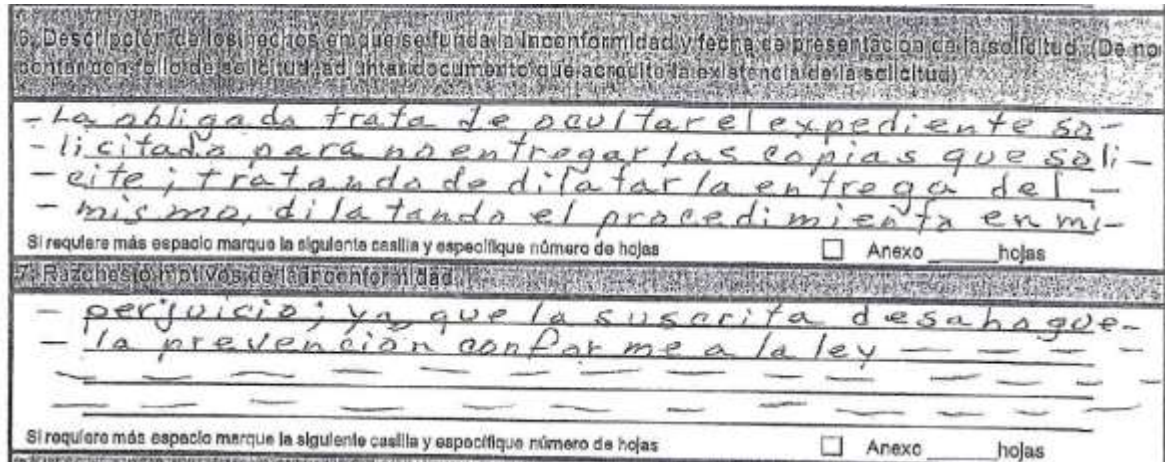 6. Descripción de los hechos en que se funda la inconformidad y fecha de presentación de la solicitud. (De no
contar con folio de solicitud, adjuntar documento que acredite la existencia de la solicitud)
- La obligada trata de ocultar el expediente so-
- licitado para no entregar las copias que soli-
- cite; tratando de dilatar la entrega del -
- mismo, dilatando el procedimiento en mi-
Si requiere más espacio marque la siguiente casilla y especifique número de hojas □ Anexo ______ hojas
7. Razones o motivos de la inconformidad.
- perjuicio; ya que la suscrita desahogue-
- la prevención conforme a la ley - - - -
Si requiere más espacio marque la siguiente casilla y especifique número de hojas □ Anexo ______ hojas